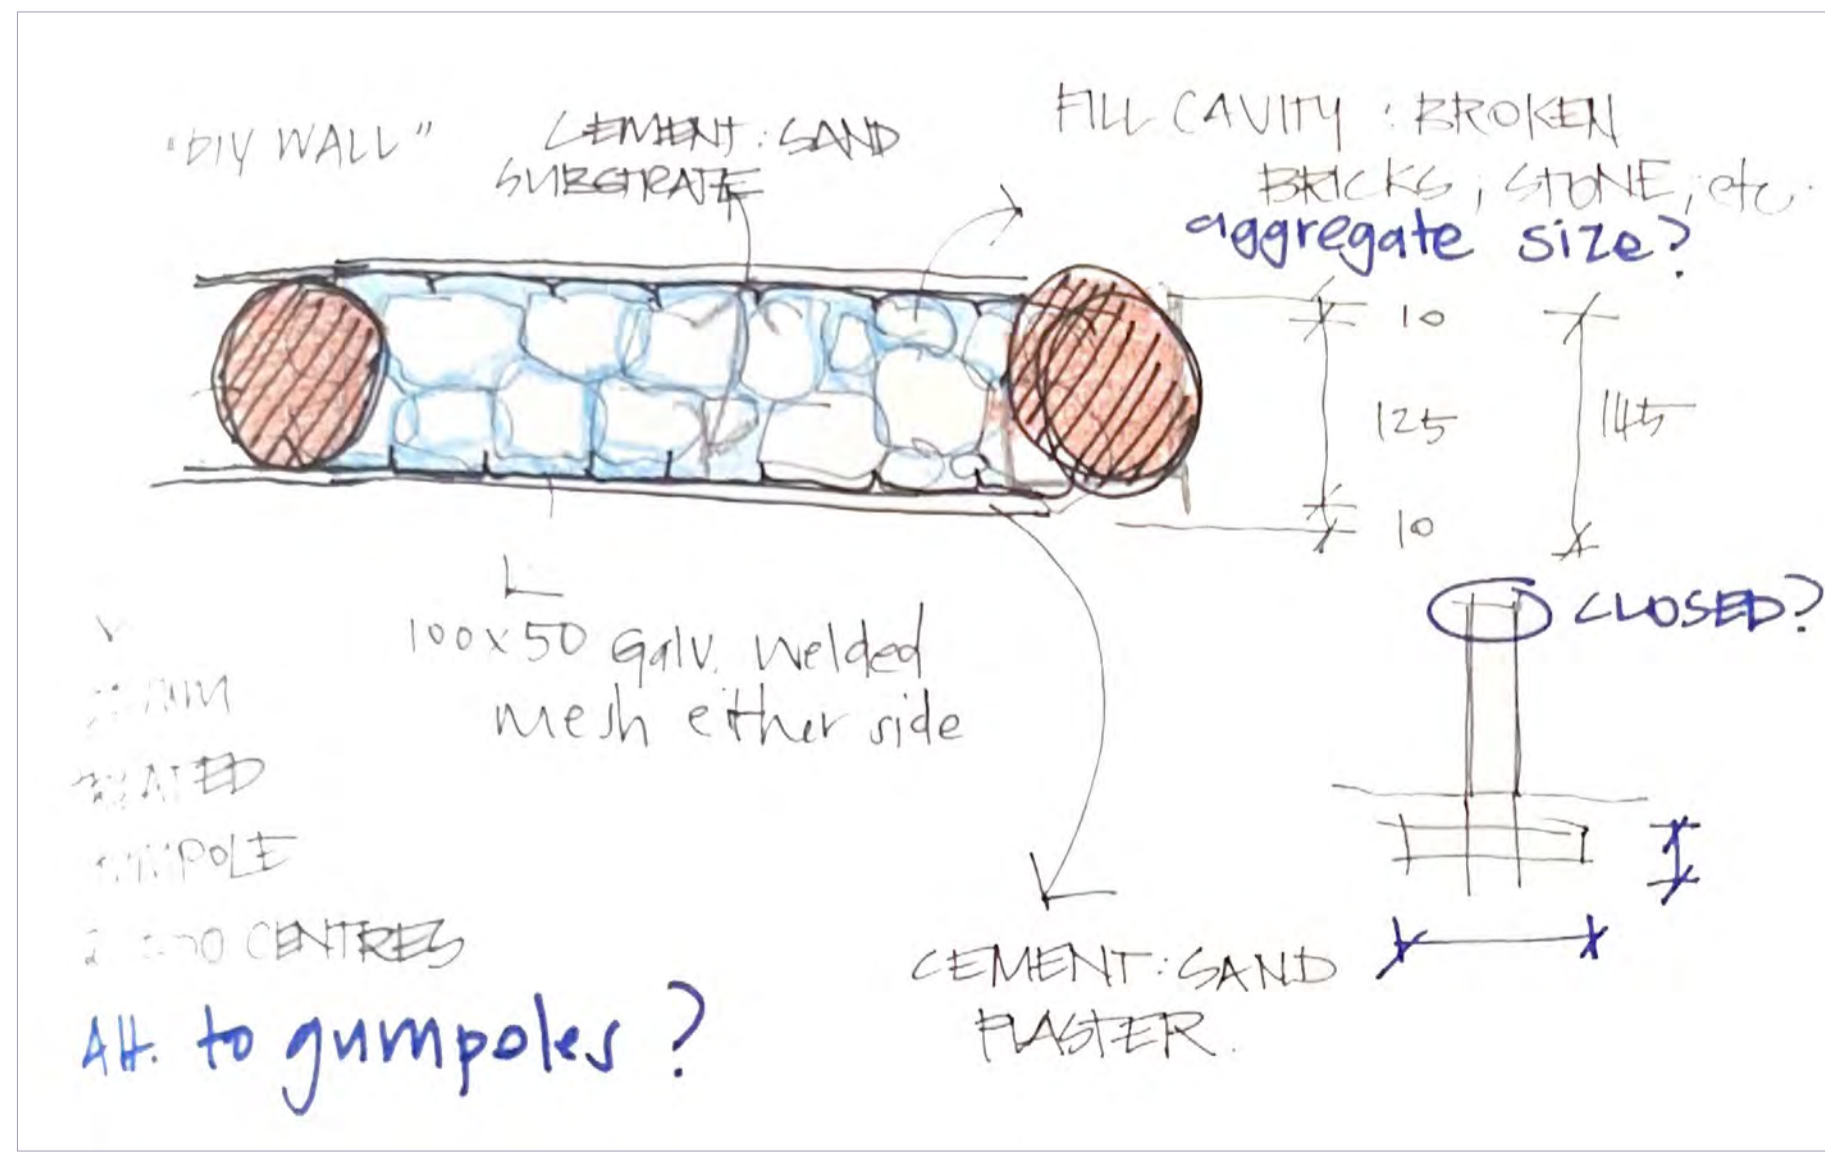 "DIY WALL"
CEMENT : SAND
SUBSTRATE
FILL CAVITY : BROKEN
BRICKS, STONE, etc.
aggregate size?
10
125
10
145
CLOSED?
100x50 Galv. welded
mesh either side
CENTRES
Alt. to gumpoles ?
CEMENT : SAND
PLASTER.